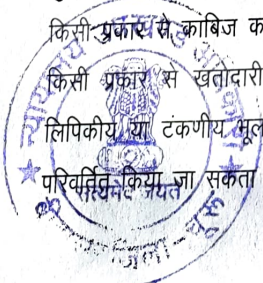 किसी प्रकार से काबिज क
किसी प्रकार स खतादारी
लिपिकीय या टंकणीय भूल
परिवर्तित किया जा सकता
सत्यमेव जयते